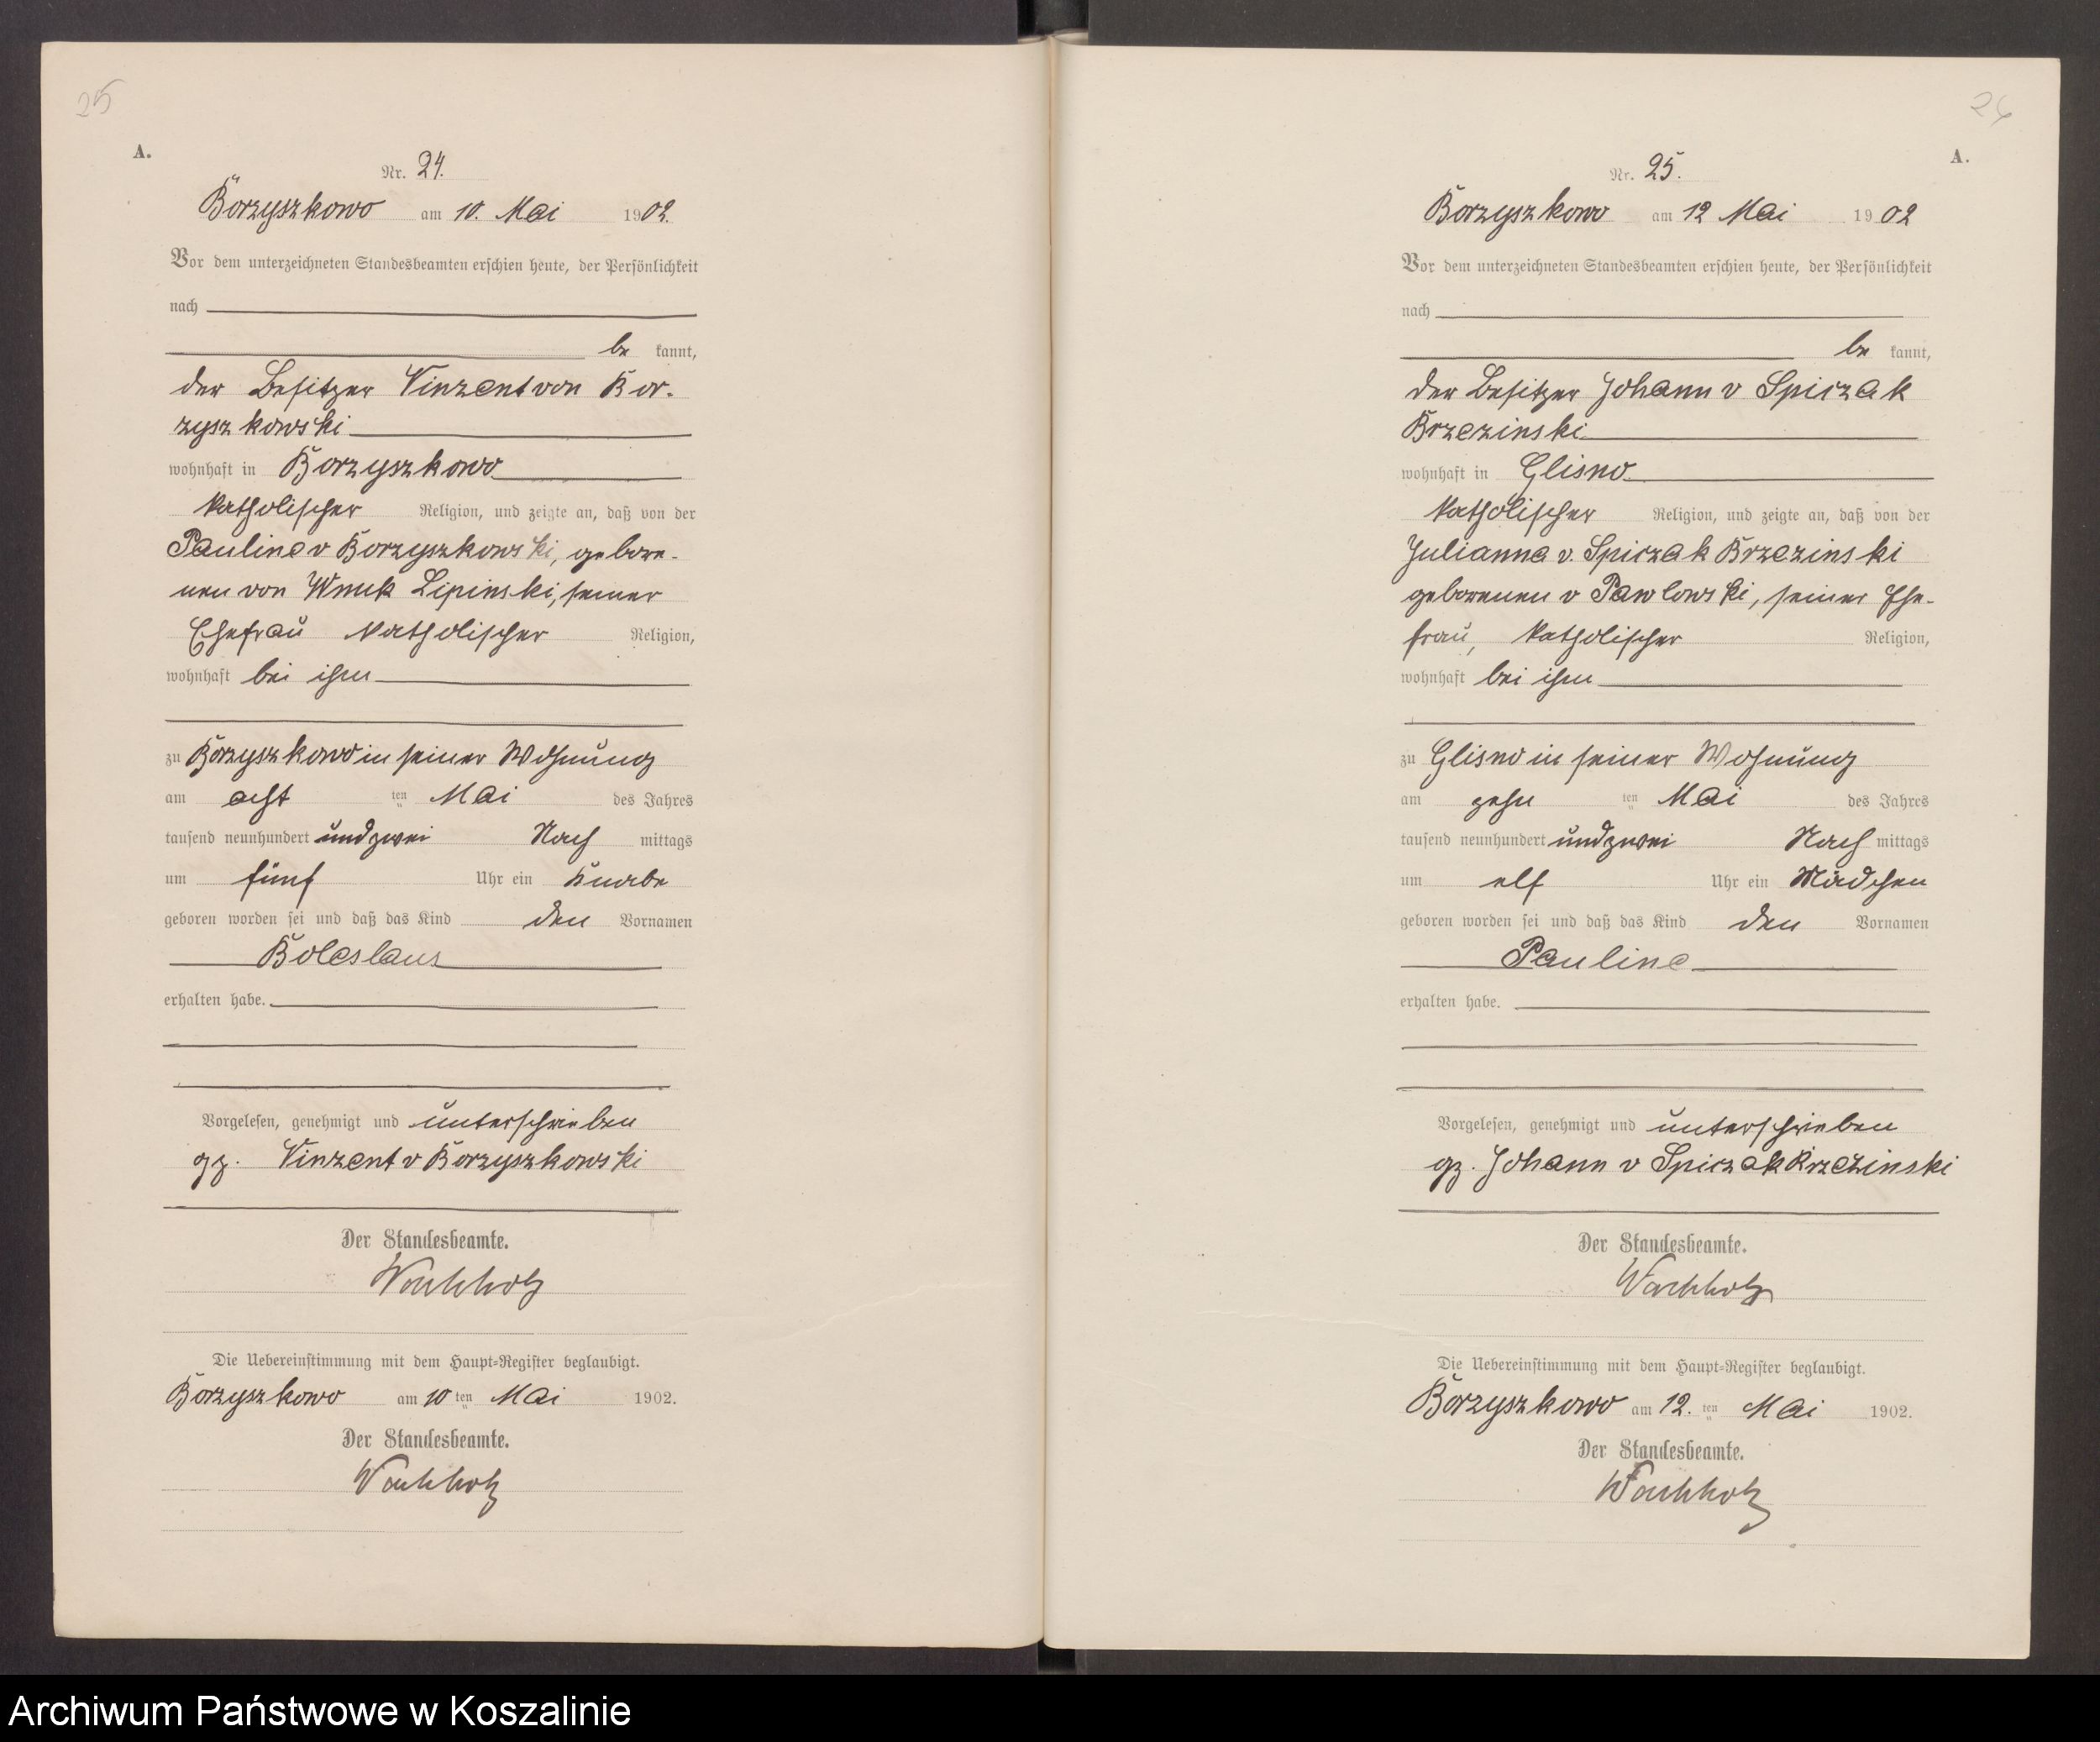 25
A.
Nr. 24.
Borzyszkowo am 10. Mai 1902.
Vor dem unterzeichneten Standesbeamten erschien heute, der Persönlichkeit
nach
be kannt,
der Besitzer Vinzent von Bor-
zyszkowski
wohnhaft in Borzyszkowo
katholischer Religion, und zeigte an, daß von der
Pauline v Borzyszkowski, gebore-
nen von Wnuk Lipinski, seiner
Ehefrau katholischer Religion,
wohnhaft bei ihm
zu Borzyszkowo in seiner Wohnung
am acht ten Mai des Jahres
tausend neunhundert und zwei Nach mittags
um fünf Uhr ein Knabe
geboren worden sei und daß das Kind den Vornamen
Boleslaus
erhalten habe.
Vorgelesen, genehmigt und unterschrieben
gz. Vinzent v Borzyszkowski
Der Standesbeamte.
Wachholz
Die Uebereinstimmung mit dem Haupt-Register beglaubigt.
Borzyszkowo am 10 ten Mai 1902.
Der Standesbeamte.
Wachholz
26
A.
Nr. 25.
Borzyszkowo am 12 Mai 1902
Vor dem unterzeichneten Standesbeamten erschien heute, der Persönlichkeit
nach
be kannt,
der Besitzer Johann v Spiczak
Brzezinski
wohnhaft in Glisno
katholischer Religion, und zeigte an, daß von der
Julianna v. Spiczak Brzezinski
geborenen v Pawlowski, seiner Ehe-
frau, katholischer Religion,
wohnhaft bei ihm
zu Glisno in seiner Wohnung
am zehn ten Mai des Jahres
tausend neunhundert und zwei Nach mittags
um elf Uhr ein Mädchen
geboren worden sei und daß das Kind den Vornamen
Pauline
erhalten habe.
Vorgelesen, genehmigt und unterschrieben
gz. Johann v Spiczak Brzezinski
Der Standesbeamte.
Wachholz
Die Uebereinstimmung mit dem Haupt-Register beglaubigt.
Borzyszkowo am 12. ten Mai 1902.
Der Standesbeamte.
Wachholz
Archiwum Państwowe w Koszalinie